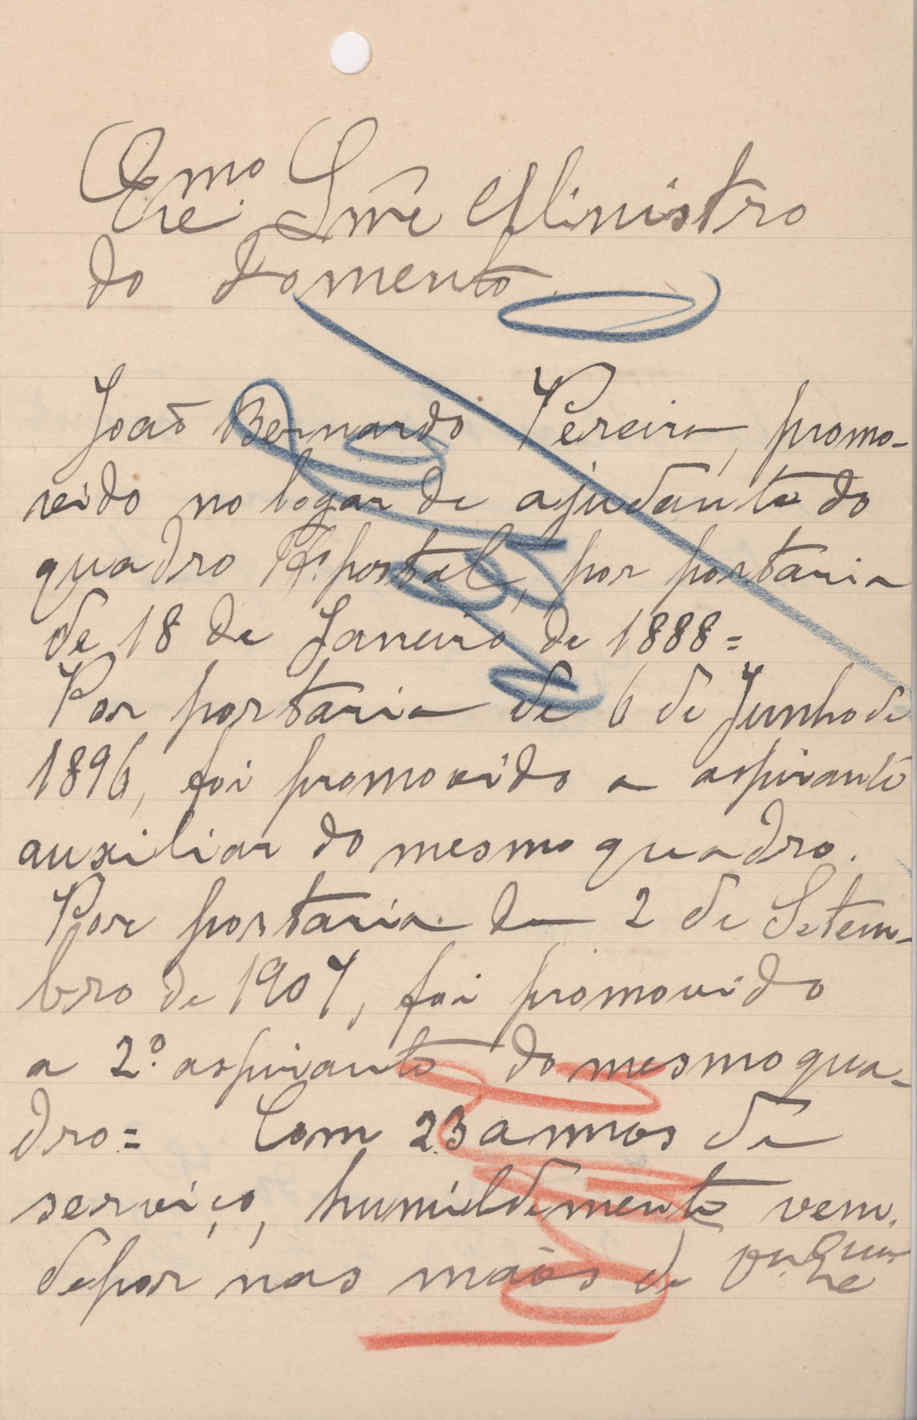 Exe.mo Snr. Ministro
do Fomento.
João Bernardo Pereira, promo-
vido no logar de ajudante do
quadro postal, por portaria
de 18 de Janeiro de 1888=
Por portaria de 6 de Junho de
1896, foi promovido a aspirante
auxiliar do mesmo quadro.
Por portaria de 2 de Setem-
bro de 1907, foi promovido
a 2.º aspirante do mesmo qua-
dro= Com 23 annos de
serviço, humildemente vem,
depor nas mãos de